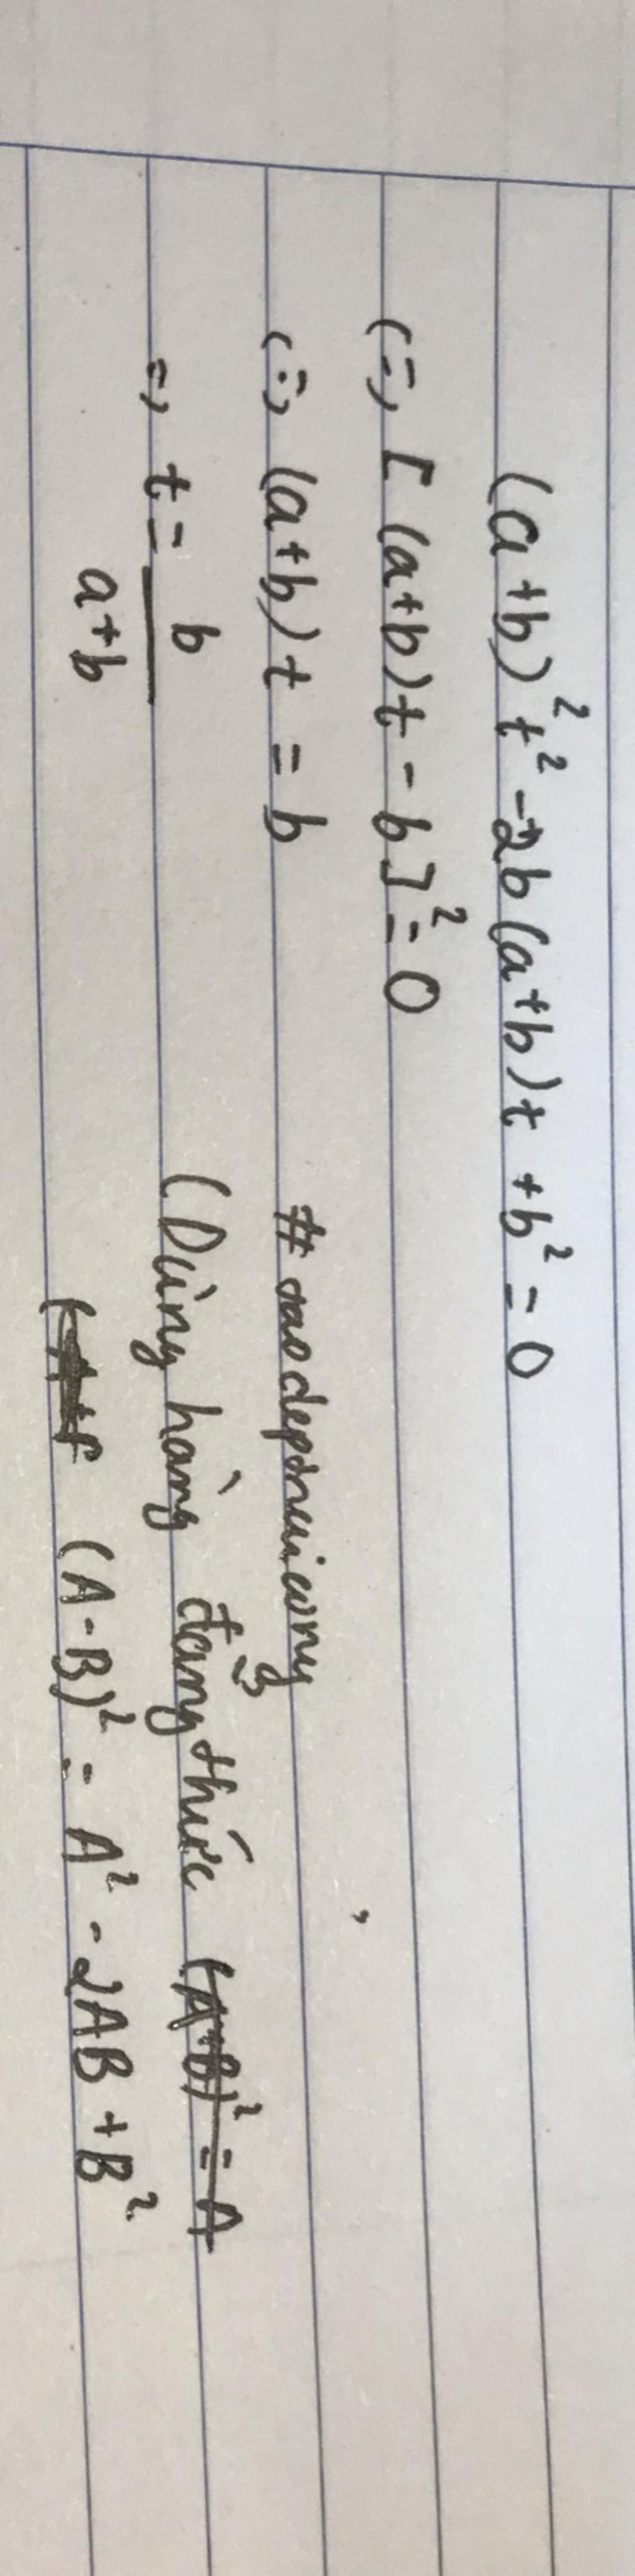 (a+b)² t² - 2b(a+b)t + b² = 0
(=) [(a+b)t - b]² = 0
(=) (a+b)t = b
=> t = b/(a+b)
(Dùng hằng đẳng thức
(A-B)² = A² - 2AB + B²